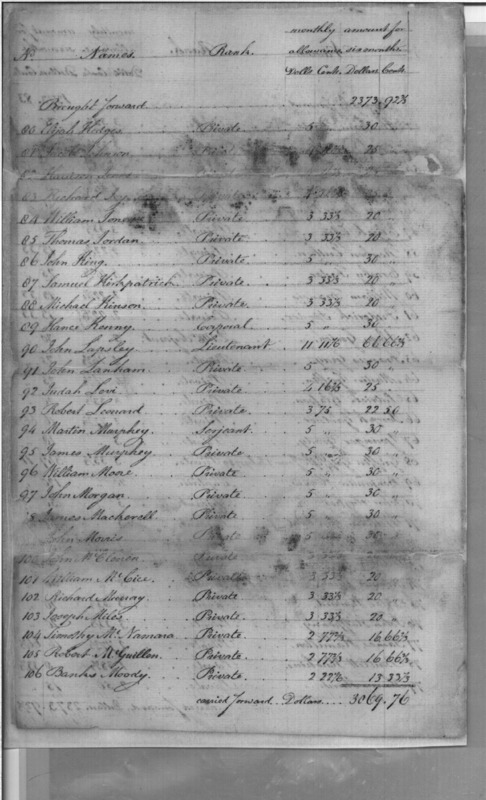 monthly amount for
No. Names. Rank. allowance six months
Dolls Cents. Dollars Cents
Brought forward 2373.92⅔
80 Elijah Hodges Private 5 30
Johnson 25
83 Richard
84 William Private 3 33⅓ 20
85 Thomas Jordan Private 3 33⅓ 20
86 John King Private 5 30
87 Samuel Kirkpatrick Private 3 33⅓ 20
88 Michael Hinson Private 3 33⅓ 20
89 Hance Kenny Corporal 5 " 30
90 John Lapsley Lieutenant 11 11⅙ 66 66⅔
91 John Lanham Private 5 30
92 Judah Levi Private 4 16⅔ 25
93 Robert Leonard Private 3 75 22 50
94 Martin Murphey Serjeant 5 30
95 James Murphey Private 5 30
96 William Moore Private 5 " 30
97 John Morgan Private 5 30
James Mackerell Private 5 30
John Morris Private 5 30
John McElonon Private
101 William McCice Private 3 33⅓ 20
102 Richard Murray Private 3 33⅓ 20
103 Joseph Miles Private 3 33⅓ 20
104 Timothy McNamara Private 2 77⅔ 16 66⅔
105 Robert McGuillon Private 2 77⅔ 16 66⅔
106 Banks Moody Private 2 22⅙ 13 33⅓
carried forward Dollars 3069.76